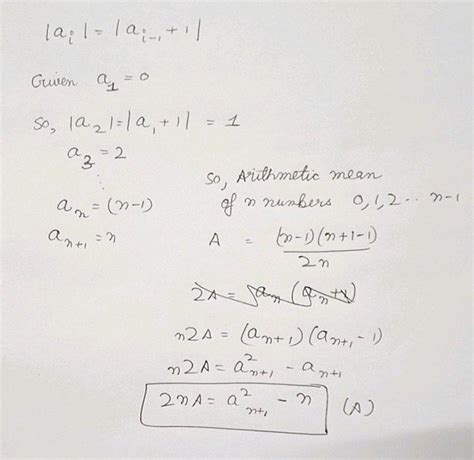 |a_i| = |a_{i-1} + 1|
Given a_1 = 0
So, |a_2| = |a_1 + 1| = 1
a_3 = 2
⋮
a_n = (n-1)
a_{n+1} = n
So, Arithmetic mean
of n numbers 0, 1, 2 .. n-1
A = \frac{(n-1)(n+1-1)}{2n}
n2A = (a_{n+1})(a_{n+1} - 1)
n2A = a^2_{n+1} - a_{n+1}
2nA = a^2_{n+1} - n (A)